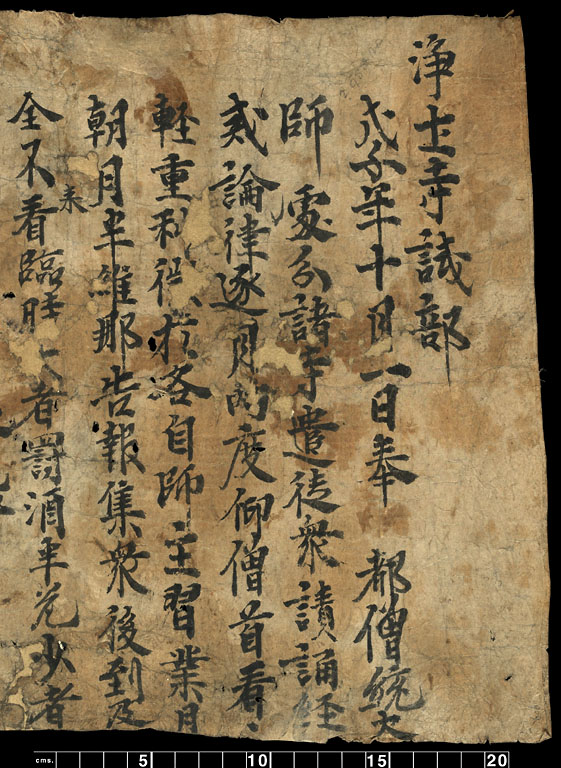 淨土寺試部
戊子年十月一日奉 都僧統大
師處分諸寺遣徒衆讀誦経
戒論律逐月兩度仰僧首看
軽重科徴於各自師主習業月
朝月半維那告報集衆後到及
全不来看臨時大者罰酒半瓮少者